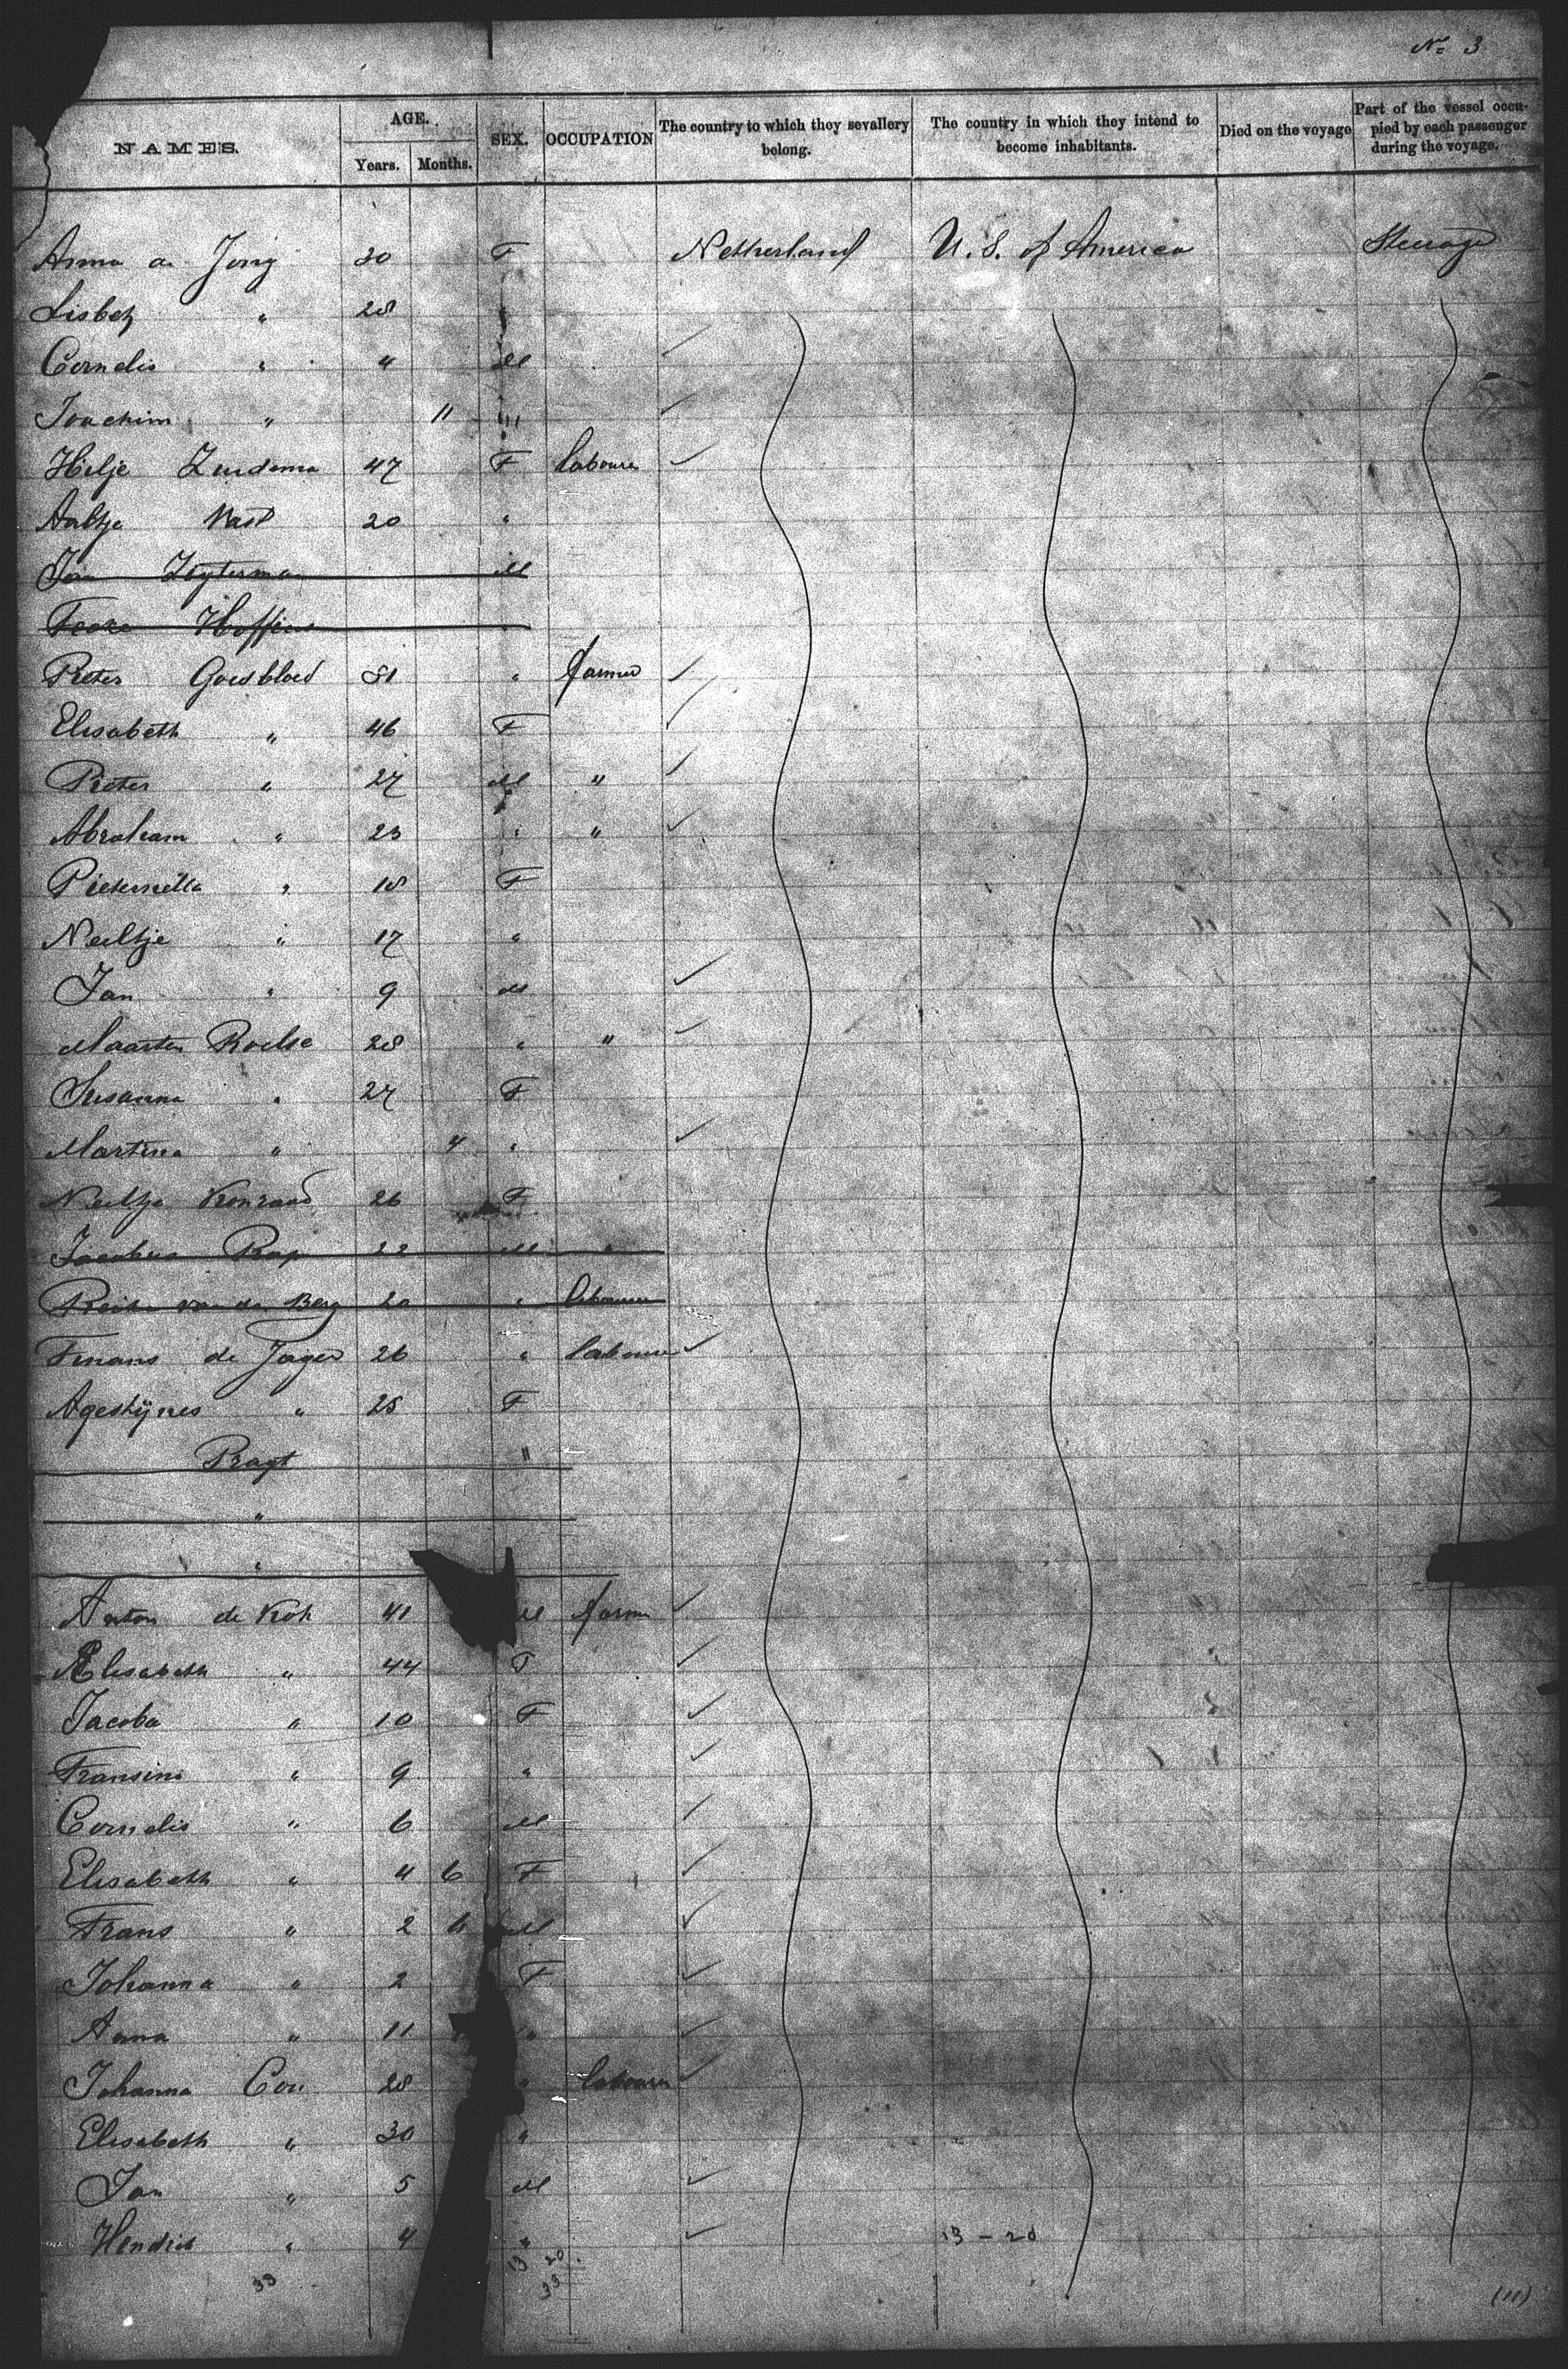 No 3
NAMES. AGE. Years. Months. SEX. OCCUPATION The country to which they sevallery belong. The country in which they intend to become inhabitants. Died on the voyage Part of the vessel occupied by each passenger during the voyage.
Anna a. Jong 30 F Netherland U. S. of America Steerage
Lisbeth " 28 "
Cornelis " 4 M
Joachim " 11 "
Hilje Zuidema 47 F labourer
Aaltje Vast 20 "
Jan Zuyterman M
Hoffine "
Pieter Goedbloed 51 " farmer
Elisabeth " 46 F
Pieter " 27 M "
Abraham " 23 " "
Pieternella " 18 F
Neeltje " 17 "
Jan " 9 M
Maarten Roelse 28 " "
Susanna " 27 F
Martina " 4 "
Neeltje Konraad 26 F
Jacobus Rap 22 M "
van de Berg 20 " labourer
de Jager 26 " labourer
" 25 F
Pragt "
"
"
Anton de Kok 41 M farmer
Elisabeth " 44 F
Jacoba " 10 F
Fransina " 9 "
Cornelis " 6 M
Elisabeth " 4 6 F
Frans " 2 6 M
Johanna " 2 F
Anna " 11 "
Johanna 28 " labourer
Elisabeth " 30 "
Jan " 5 M
Hendrik " 4 " 13 - 20
33 13 20
33
(11)